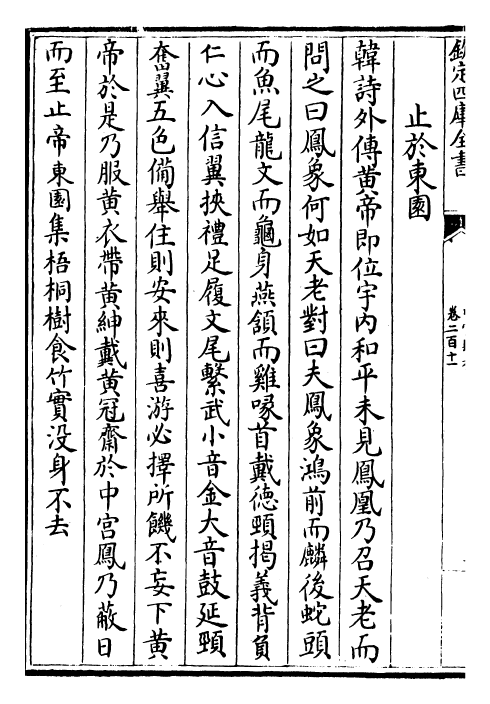 欽定四庫全書
卷二百十一
止於東園
韓詩外傳黄帝即位宇内和平未見鳳凰乃召天老而
問之曰鳳象何如天老對曰夫鳳象鴻前而麟後蛇頭
而魚尾龍文而龜身燕頷而雞喙首戴徳頸掲義背負
仁心入信翼挾禮足履文尾繫武小音金大音鼓延頸
奮翼五色備舉住則安來則喜游必擇所饑不妄下黄
帝於是乃服黄衣帶黄紳戴黄冠齋於中宫鳳乃蔽日
而至止帝東園集梧桐樹食竹實没身不去